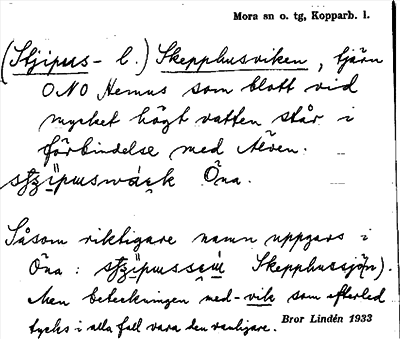 Mora sn o. tg, Kopparb. l.
(Stjipus- l.) Skepphusviken, tjärn
ONO Hemus som blott vid
mycket högt vatten står i
förbindelse med Älven.
Öna.
Såsom riktigare namn uppgavs i
Öna: Skepphussjön).
Men beteckningen med -vik som efterled
tycks i alla fall vara den vanligare.
Bror Lindén 1933